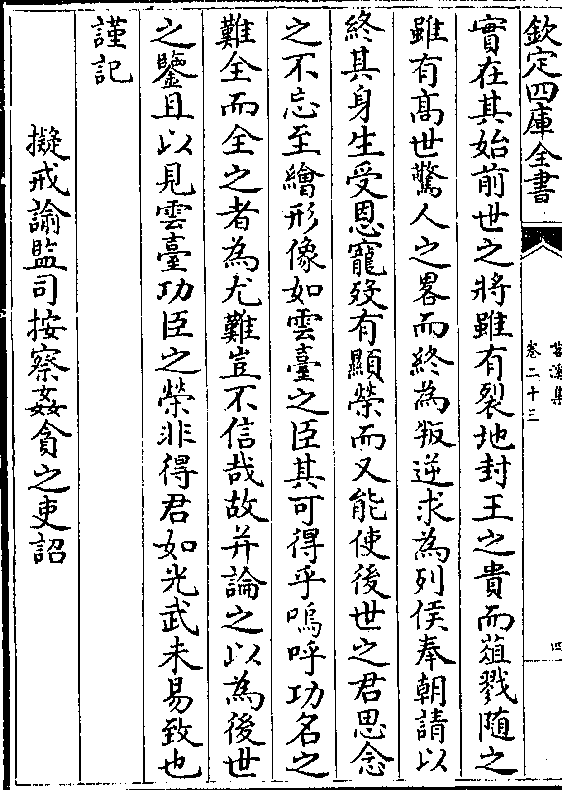 欽定四庫全書
苕溪集
卷二十三
四
實在其始前世之將雖有裂地封王之貴而葅戮随之
雖有髙世驚人之畧而終為叛逆求為列侯奉朝請以
終其身生受恩寵殁有顯榮而又能使後世之君思念
之不忘至繪形像如雲臺之臣其可得乎嗚呼功名之
難全而全之者為尤難豈不信哉故并論之以為後世
之鑒且以見雲臺功臣之榮非得君如光武未易致也
謹記
擬戒諭監司按察姦貪之吏詔